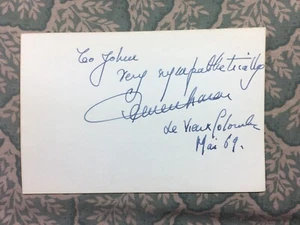 to John
very sympathetically
Le Vieux Colombier
Mai 69.